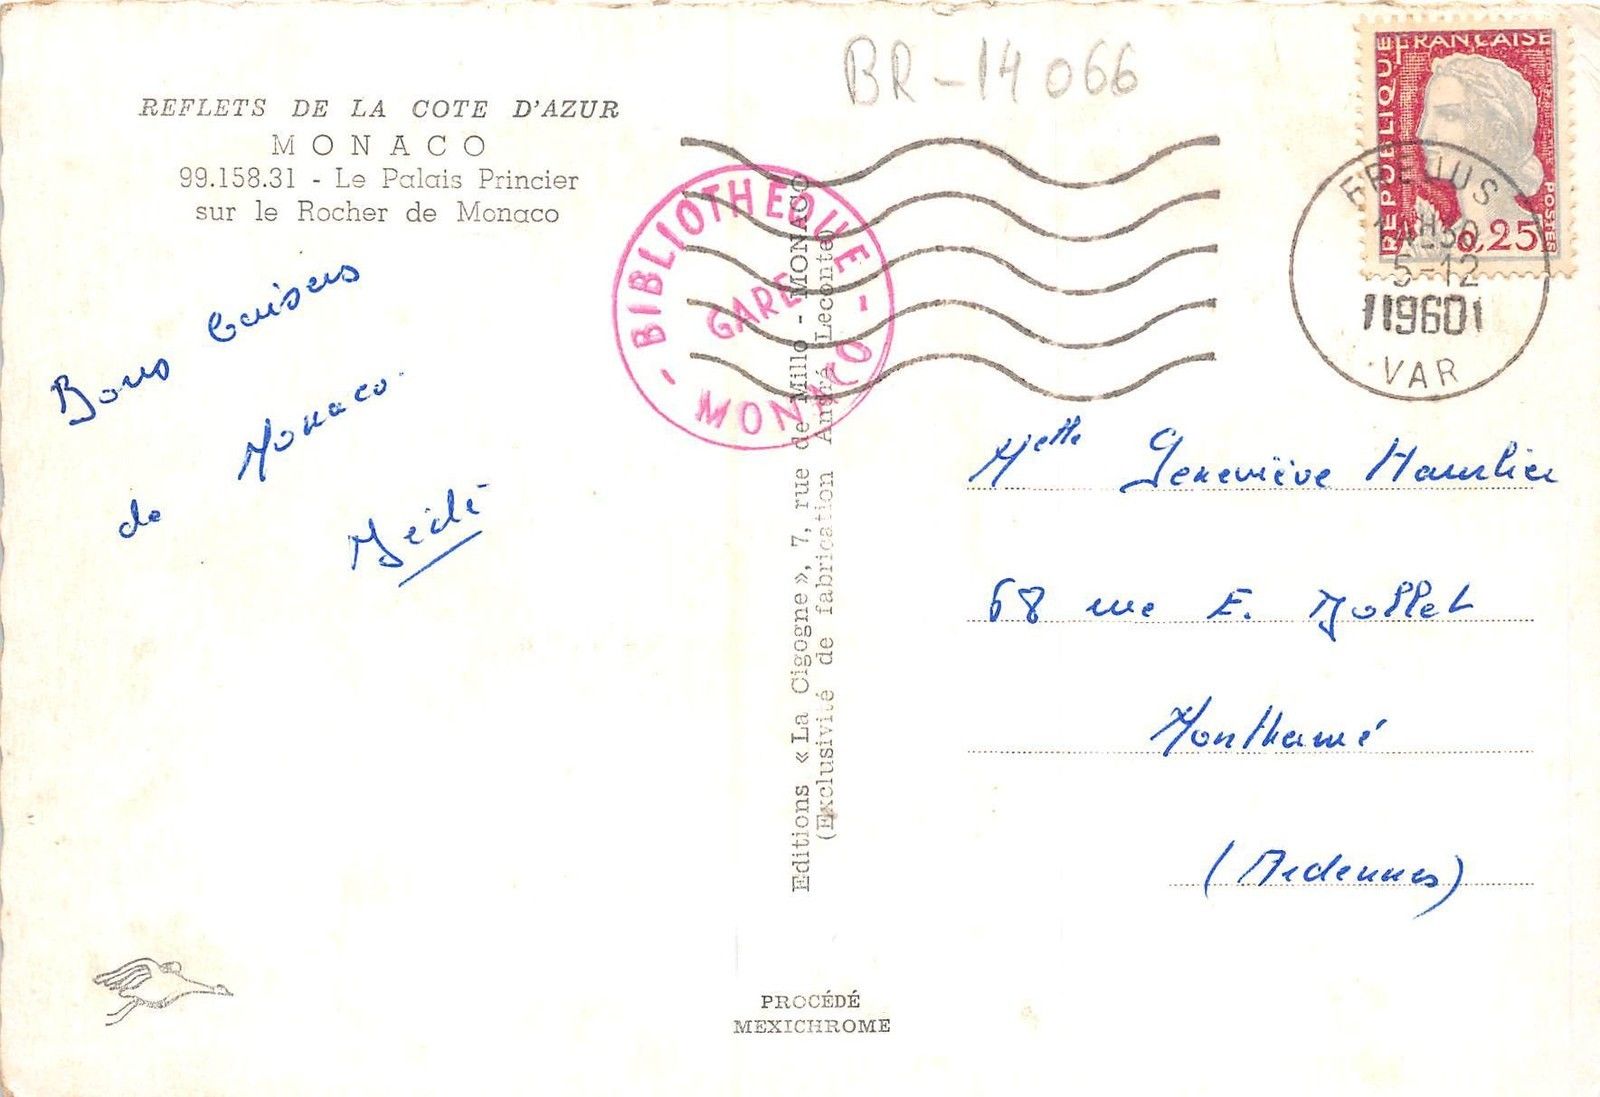 BR-14066
REPUBLIQUE FRANCAISE
POSTES
0,25
REFLETS DE LA COTE D'AZUR
MONACO
99.158.31 - Le Palais Princier
sur le Rocher de Monaco
- BIBLIOTHEQUE -
GARE
MONACO
FREJUS
5-12
1960
VAR
Bons baisers
de Monaco.
Editions « La Cigogne », 7, rue de Millo - MONACO
(Exclusivité de fabrication André Leconte)
Melle Geneviève
68 rue E. Dollet
Monthermé
(Ardennes)
PROCÉDÉ
MEXICHROME